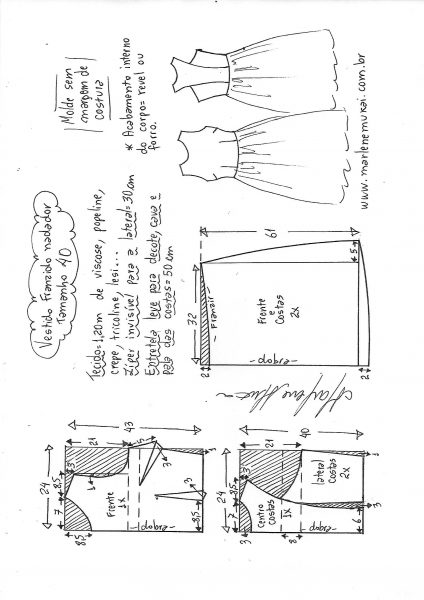 Vestido Franzido nadador
Tamanho 40
Molde sem
margem de
costura
* Acabamento interno
do corpo= revel ou
forro.
Tecido=1,20m de viscose, popeline,
crepe, tricoline, lesi...
Zíper invisível para a lateral=30cm
Entretela leve para decote, cava e
pala das costas=50cm
www.marlenemukai.com.br
61
5
32
Franzir
Frente
e
Costas
2x
dobra
2
2
43
21
5
24
8,5
3
7
1
3
3
Frente
1x
dobra
8,5
8,5
1
40
21
24
8,5
3
7
3
Centro
Costas
1x
lateral
Costas
2x
dobra
8
6
3
1